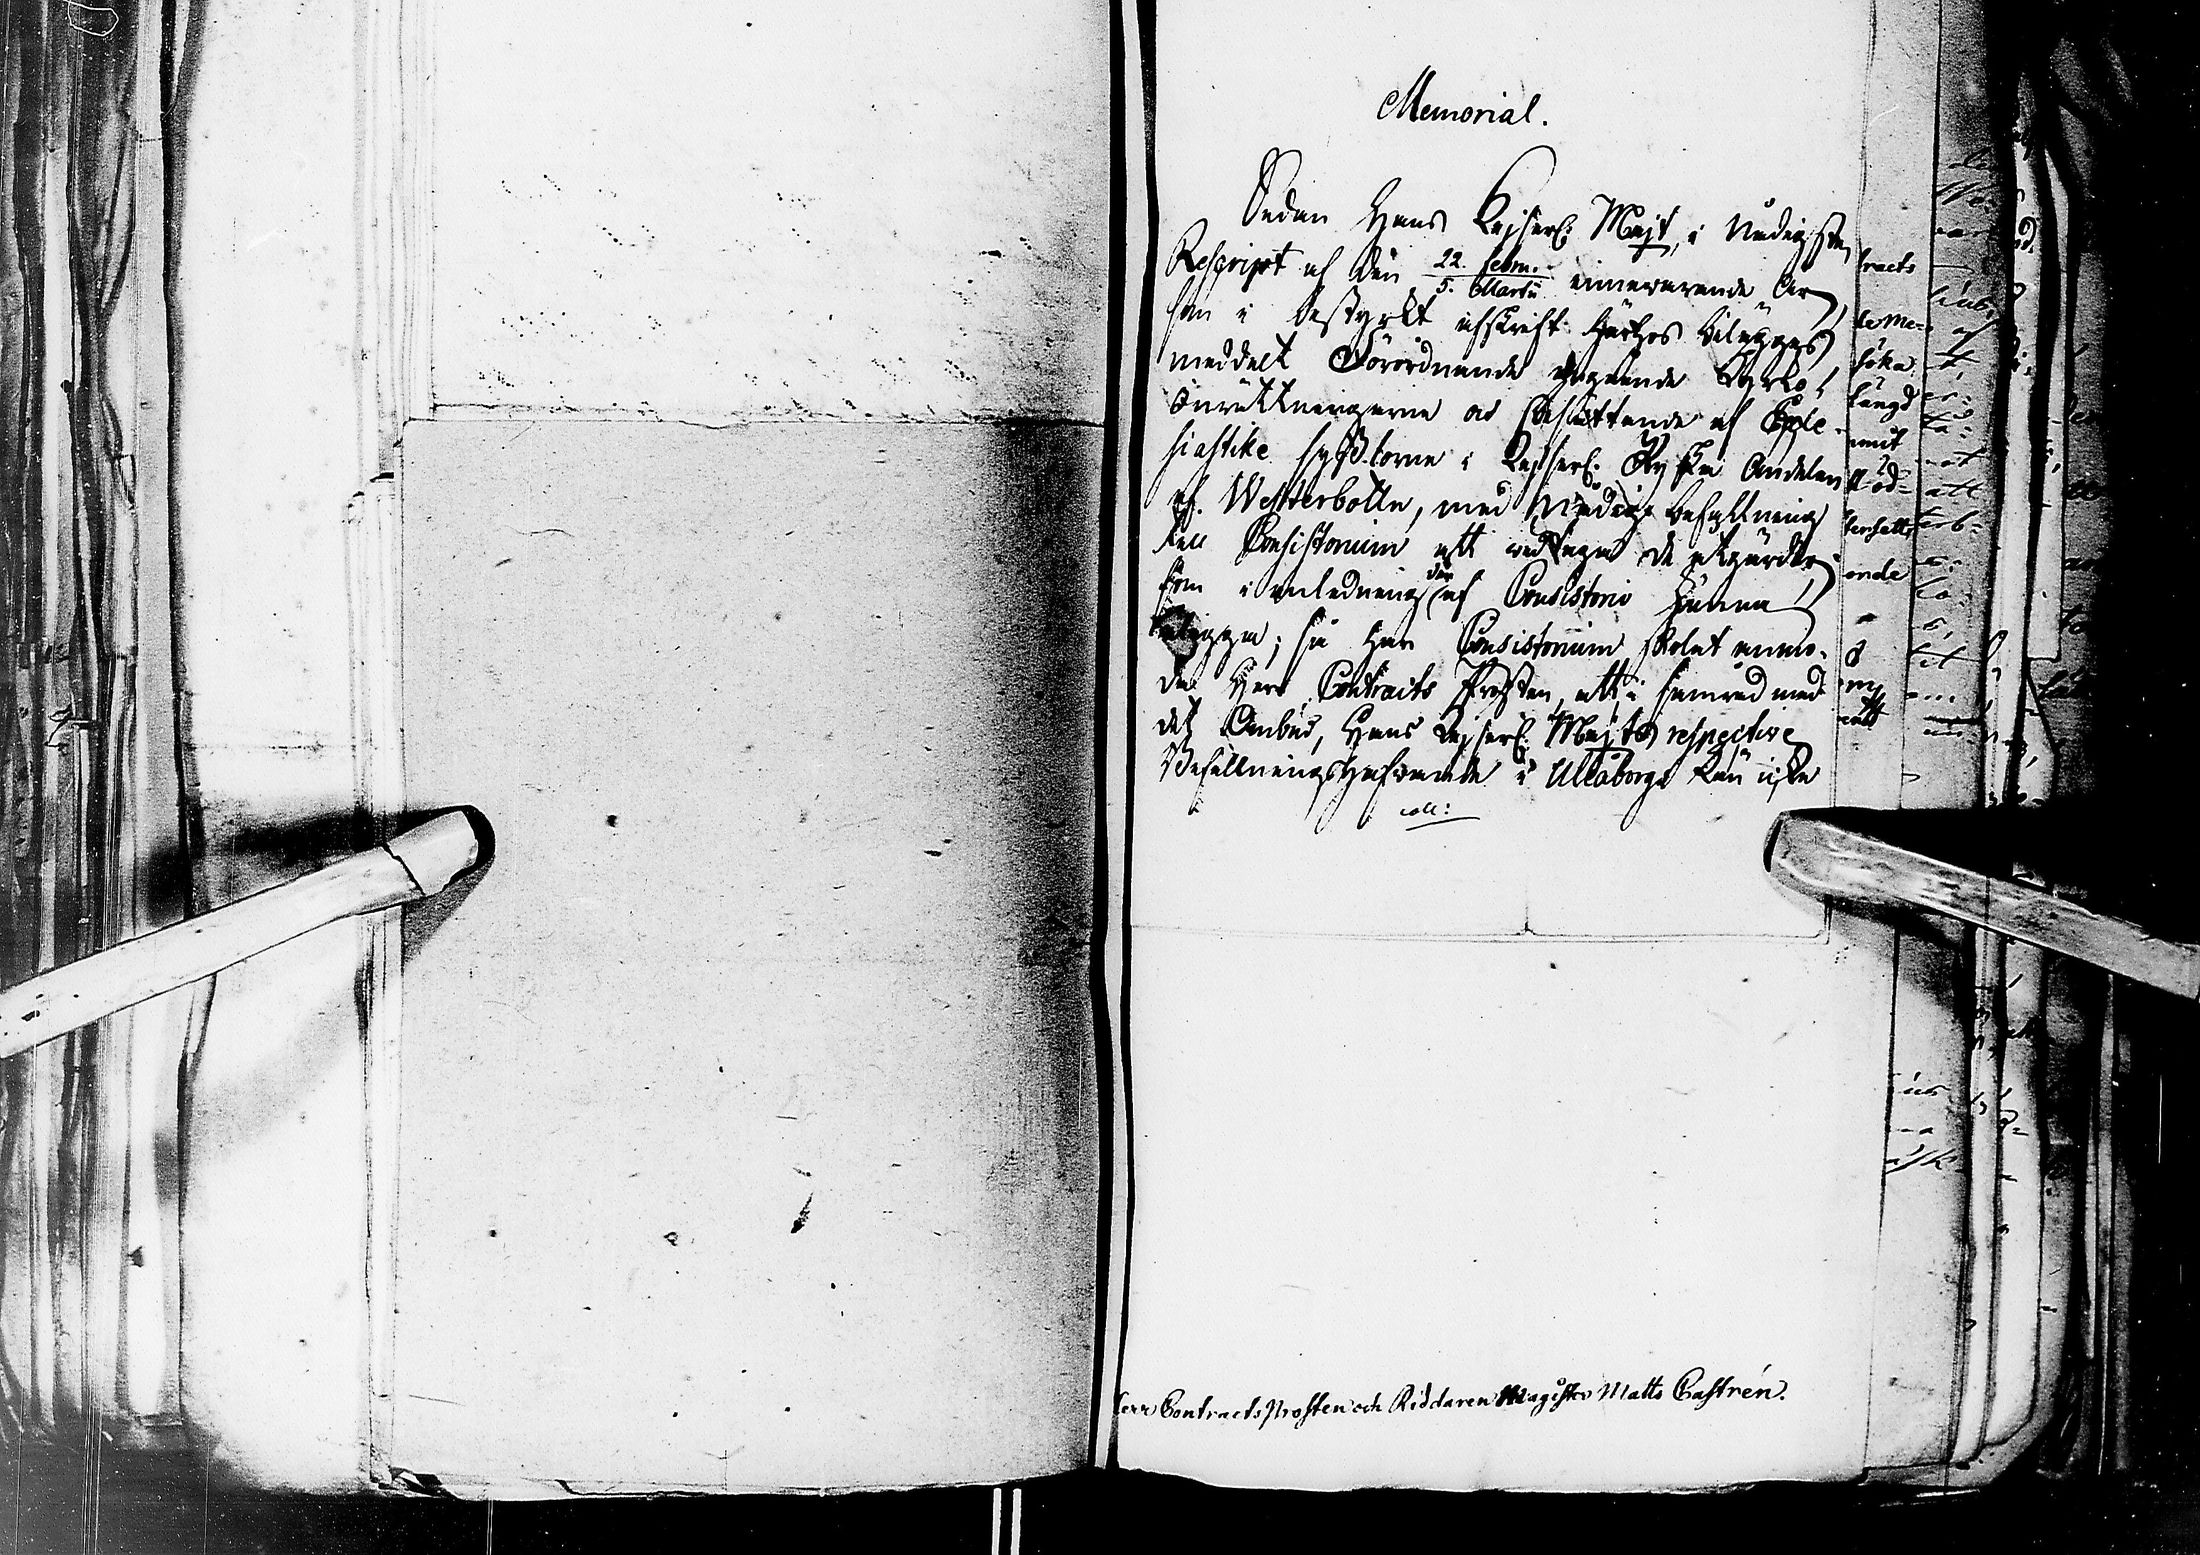 Memorial.
Sedan Hans Kejserl: Majt, i Nådigste
Rescript af den 22. Febru. / 5. Martii innevarande år,
som i bestyrkt afskrift härhos bilägges,
meddelt Förordnande angående Kyrko-
inrättningarne och besättande af Eccle-
siastike sysslorne i Kejserl: Ryska Andelen
af Westerbotten, med Nådig befallning
till Consistorium att vidtaga de åtgärder
som i anledning der af Consistorio kunna
åligga; så har Consistorium skolat anmo-
da Herr Contracts Prosten, att i samråd med
det Ombud, Hans Kejserl: Majts respective
Befallningshafvande i Uleåborgs Län icke
coll:
Herr Contracts Prosten och Riddaren Magister Matts Castrén.
tracts
söka
längd
ende
att